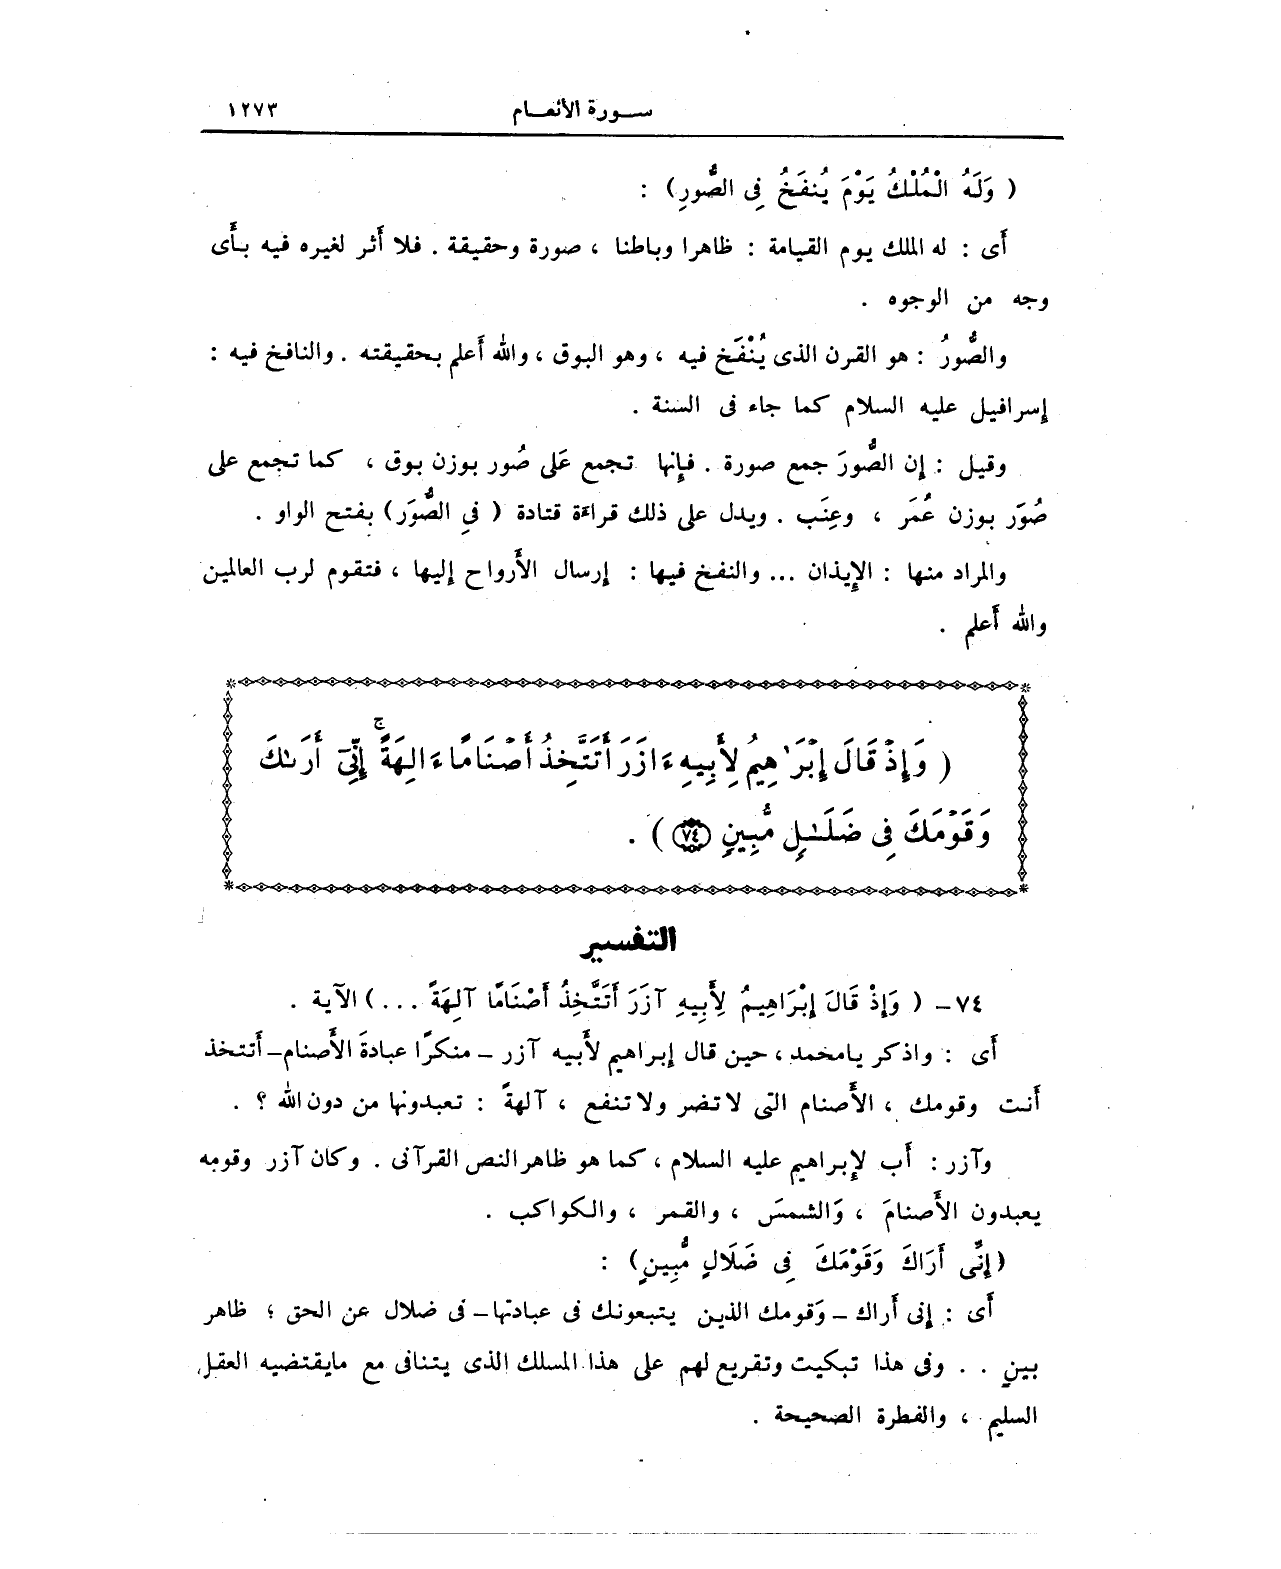 سورة الأنعام ١٢٧٣
( وَلَهُ الْمُلْكُ يَوْمَ يُنفَخُ فِى الصُّورِ ) :
أَى : له الملك يوم القيامة : ظاهرا وباطنا ، صورة وحقيقة . فلا أَثر لغيره فيه بأَى
وجه من الوجوه .
والصُّورُ : هو القرن الذى يُنْفَخ فيه ، وهو البوق ، والله أَعلم بحقيقته . والنافخ فيه :
إسرافيل عليه السلام كما جاء فى السنة .
وقيل : إن الصُّورَ جمع صورة . فإنها تجمع عَلى صُور بوزن بوق ، كما تجمع على
صُوَر بوزن عُمَر ، وعِنَب . ويدل على ذلك قراءة قتادة ( فى الصُّوَر ) بفتح الواو .
والمراد منها : الإيذان ... والنفخ فيها : إرسال الأَرواح إليها ، فتقوم لرب العالمين
والله أَعلم .
( وَإِذْ قَالَ إِبْرَٰهِيمُ لِأَبِيهِ ءَازَرَ أَتَتَّخِذُ أَصْنَامًا ءَالِهَةً ۚ إِنِّىٓ أَرَىٰكَ
وَقَوْمَكَ فِى ضَلَـٰلٍ مُّبِينٍ ﴿٧٤﴾ ) .
التفسير
٧٤ - ( وَإِذْ قَالَ إِبْرَاهِيمُ لِأَبِيهِ آزَرَ أَتَتَّخِذُ أَصْنَامًا آلِهَةً ... ) الآية .
أَى : واذكر يامحمد ، حين قال إبراهيم لأَبيه آزر - منكرًا عبادةَ الأَصنام - أَتتخذ
أَنت وقومك ، الأَصنام التى لاتضر ولاتنفع ، آلهةً : تعبدونها من دون الله ؟ .
وآزر : أَب لإبراهيم عليه السلام ، كما هو ظاهر النص القرآنى . وكان آزر وقومه
يعبدون الأَصنامَ ، وَالشمسَ ، والقمر ، والكواكب .
( إِنِّى أَرَاكَ وَقَوْمَكَ فِى ضَلَالٍ مُّبِينٍ ) :
أَى : إنى أَراك - وَقومك الذين يتبعونك فى عبادتها - فى ضلال عن الحق ؛ ظاهر
بينٍ . . وفى هذا تبكيت وتقريع لهم على هذا المسلك الذى يتنافى مع مايقتضيه العقل
السليم ، والفطرة الصحيحة .